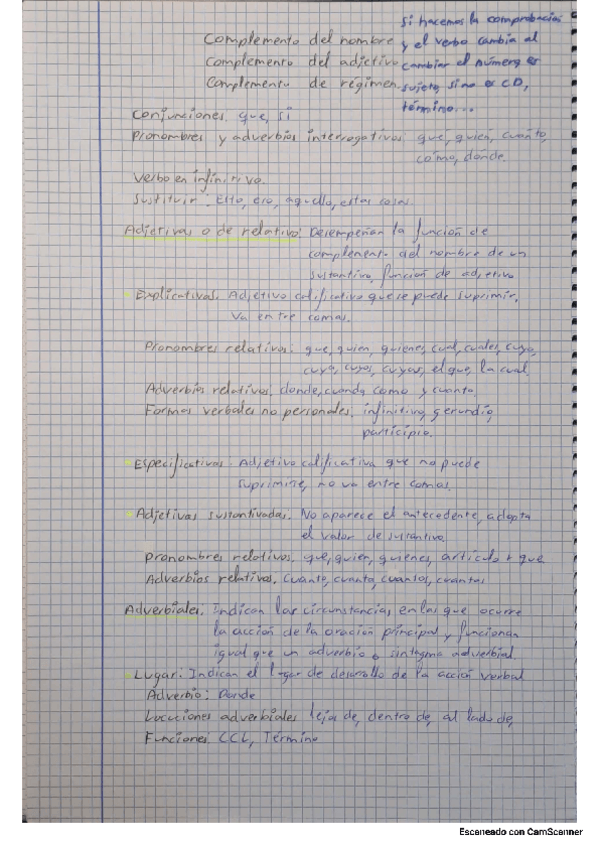 Si hacemos la comprobación
Complemento del nombre y el verbo cambia al
Complemento del adjetivo cambiar el número es
Complemento de régimen. sujeto, sino es CD,
término...
Conjunciones. que, si
Pronombres y adverbios interrogativos. que, quien, cuanto,
cómo, dónde.
Verbo en infinitivo.
Sustituir. Esto, eso, aquello, estas cosas.
Adjetivas o de relativo: Desempeñan la función de
complemento del nombre de un
sustantivo, función de adjetivo
Explicativas. Adjetivo calificativo que se puede suprimir,
va entre comas.
Pronombres relativos: que, quien, quienes, cual, cuales, cuyo,
cuya, cuyos, cuyas, el que, la cual.
Adverbios relativos. donde, cuando, como y cuanto.
Formas verbales no personales. infinitivo, gerundio,
participio.
Especificativas. Adjetivo calificativo que no puede
suprimirse, no va entre comas.
Adjetivas sustantivadas. No aparece el antecedente, adopta
el valor de sustantivo.
Pronombres relativos. que, quien, quienes, artículo + que
Adverbios relativos. Cuanto, cuanta, cuantos, cuantas
Adverbiales. Indican las circunstancias en las que ocurre
la acción de la oración principal y funcionan
igual que un adverbio o sintagma adverbial.
Lugar: Indican el lugar de desarollo de la acción verbal
Adverbio: Donde
Locuciones adverbiales lejos de, dentro de, al lado de,
Funciones. CCL, Término
Escaneado con CamScanner